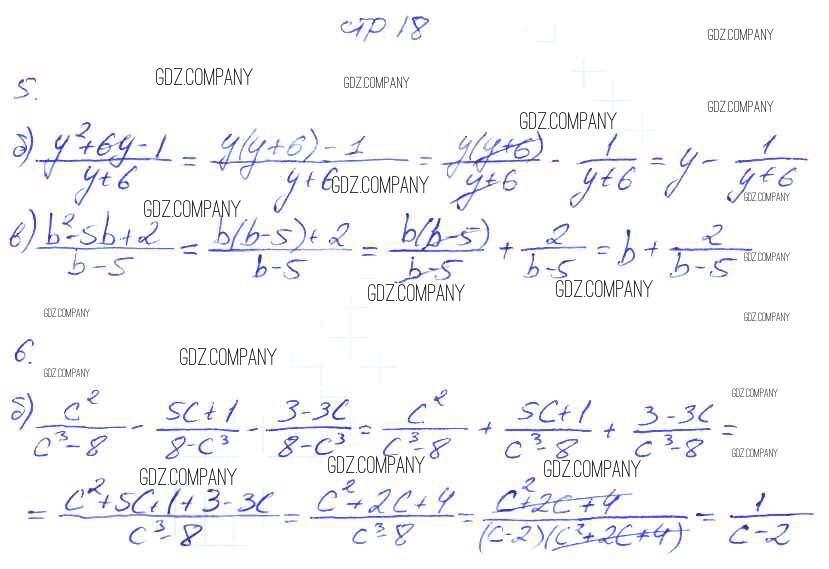 стр 18
GDZ.COMPANY
GDZ.COMPANY GDZ.COMPANY
5.
GDZ.COMPANY
GDZ.COMPANY
б) (y²+6y-1)/(y+6) = (y(y+6)-1)/(y+6) = (y(y+6))/(y+6) - 1/(y+6) = y - 1/(y+6)
GDZ.COMPANY
GDZ.COMPANY GDZ.COMPANY
в) (b²-5b+2)/(b-5) = (b(b-5)+2)/(b-5) = (b(b-5))/(b-5) + 2/(b-5) = b + 2/(b-5)
GDZ.COMPANY
GDZ.COMPANY GDZ.COMPANY
GDZ.COMPANY GDZ.COMPANY
6.
GDZ.COMPANY
GDZ.COMPANY
GDZ.COMPANY
б) c²/(c³-8) - (5c+1)/(8-c³) - (3-3c)/(8-c³) = c²/(c³-8) + (5c+1)/(c³-8) + (3-3c)/(c³-8) =
GDZ.COMPANY
GDZ.COMPANY GDZ.COMPANY GDZ.COMPANY
= (c²+5c+1+3-3c)/(c³-8) = (c²+2c+4)/(c³-8) = (c²+2c+4)/((c-2)(c²+2c+4)) = 1/(c-2)